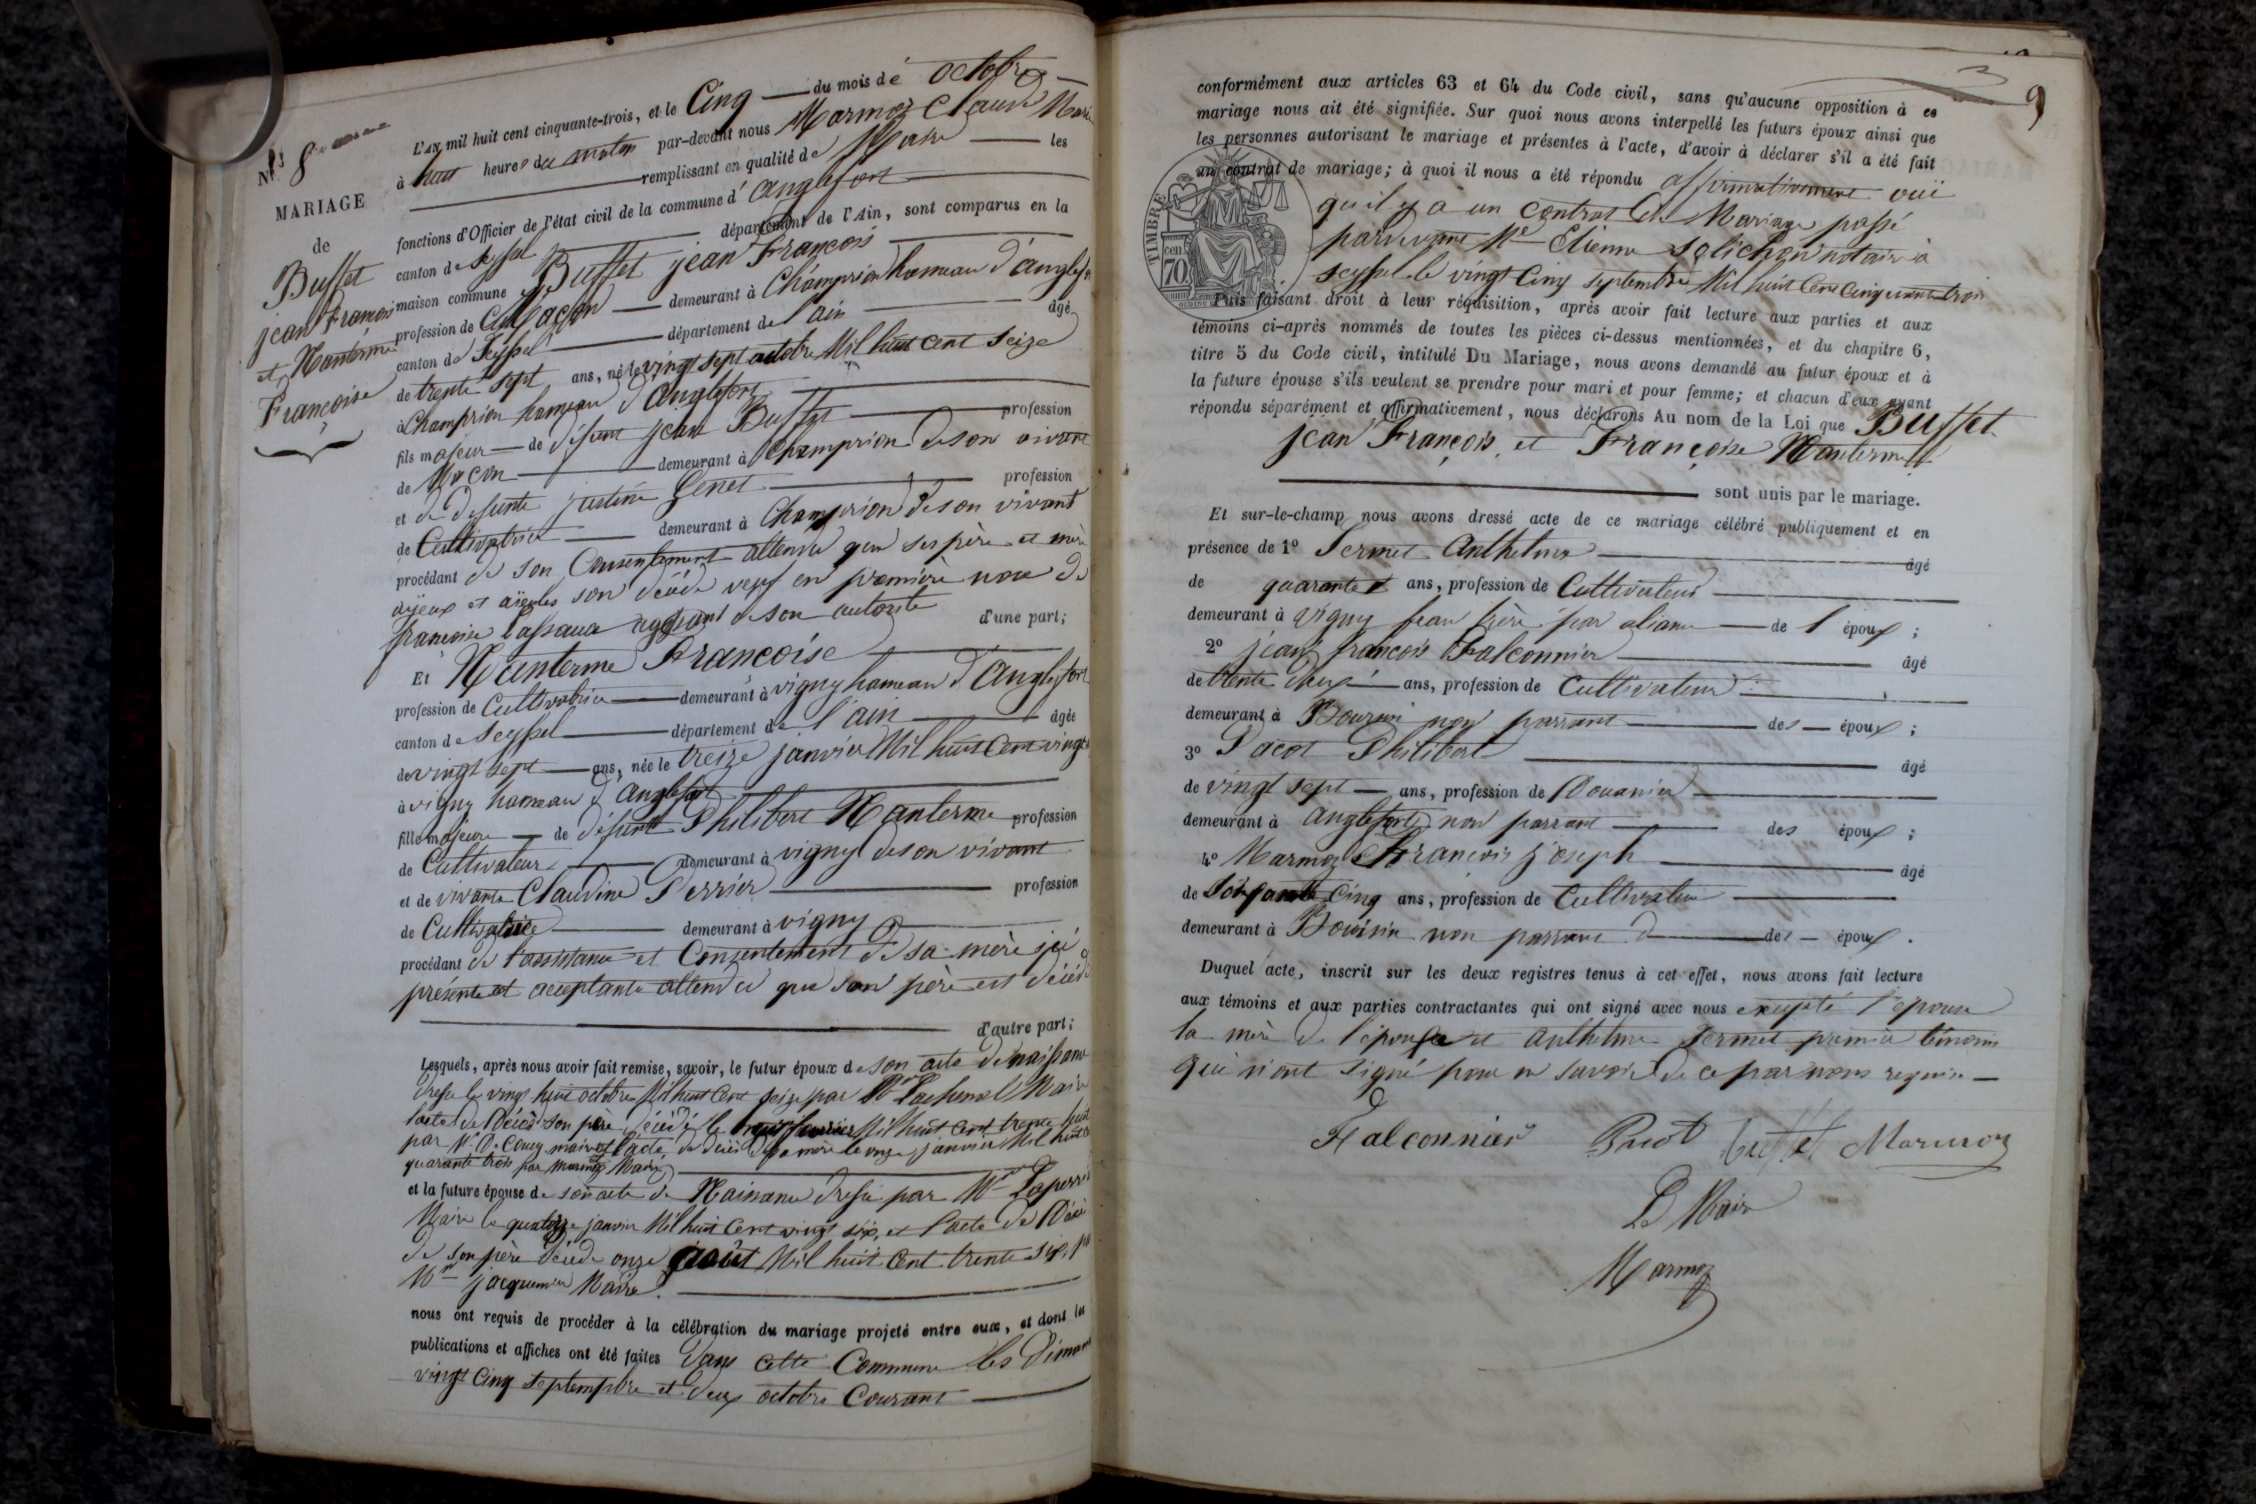 N° 8
MARIAGE
de
Buffet
jean François
et Nanterme
Françoise
L'AN mil huit cent cinquante-trois, et le Cinq du mois de octobre
à huit heures du matin par-devant nous Marmoz Claude Marie
remplissant en qualité de Maire les
fonctions d'Officier de l'état civil de la commune d'anglefort
canton de Seyssel département de l'Ain, sont comparus en la
maison commune Buffet jean François
profession de demeurant à Champrion hameau d'anglefort
canton de Seyssel département de l'ain âgé
de trente sept ans, né le vingt sept octobre Mil huit cent seize
à Champrion hameau d'anglefort
fils majeur de défunt jean Buffet profession
de Maçon demeurant à Champrion de son vivant
et de défunte justine Genet profession
de Cultivatrice demeurant à Champrion de son vivant
procédant de son Consentement attendu que ses père et mère
ayeux et aïeules son décédé veuf en première noce de
françoise agissant de son autorité d'une part;
Et Nanterme Francoise
profession de Cultivatrice demeurant à vigny hameau d'Anglefort
canton de Seyssel département de l'ain âgée
de vingt sept ans, née le treize janvier Mil huit Cent vingt
à vigny hameau d'anglefort
fille majeure de défunt Philibert Nanterme profession
de Cultivateur demeurant à vigny de son vivant
et de vivante Claudine Perrier profession
de Cultivatrice demeurant à vigny
procédant de l'assistance et Consentement de sa mère ici
présente et acceptante attendu que son père est décédé
d'autre part;
Lesquels, après nous avoir fait remise, savoir, le futur époux de son acte de naissance
dressé le vingt huit octobre Mil huit Cent seize par Mr Lachenal Maire
l'acte de Décès son père décédé le Mil huit Cent trente huit
par Mr De Couz maire et l'acte de décès de sa mère le onze janvier Mil huit
quarante trois par Marmoz Maire
et la future épouse de son acte de Naissance dressé par Mr
Maire le quatorze janvier Mil huit Cent vingt six, et l'acte de Décès
de son père décédé onze août Mil huit Cent trente six, par
Mr jacquemier Maire
nous ont requis de procéder à la célébration du mariage projeté entre eux, et dont les
publications et affiches ont été faites dans cette Commune les Dimanches
vingt Cinq septembre et deux octobre Courant
9
conformément aux articles 63 et 64 du Code civil, sans qu'aucune opposition à ce
mariage nous ait été signifiée. Sur quoi nous avons interpellé les futurs époux ainsi que
les personnes autorisant le mariage et présentes à l'acte, d'avoir à déclarer s'il a été fait
un contrat de mariage; à quoi il nous a été répondu affirmativement oui
qu'il y a un Contrat de Mariage passé
pardevant Me Etienne Solichon notaire à
TIMBRE
70 cen
Seyssel le vingt Cinq septembre Mil huit Cent Cinquante trois
Puis faisant droit à leur réquisition, après avoir fait lecture aux parties et aux
témoins ci-après nommés de toutes les pièces ci-dessus mentionnées, et du chapitre 6,
titre 5 du Code civil, intitulé Du Mariage, nous avons demandé au futur époux et à
la future épouse s'ils veulent se prendre pour mari et pour femme; et chacun d'eux ayant
répondu séparément et affirmativement, nous déclarons Au nom de la Loi que Buffet
jean François, et Françoise Nanterme
sont unis par le mariage.
Et sur-le-champ nous avons dressé acte de ce mariage célébré publiquement et en
présence de 1° Sermet Anthelme âgé
de quarante ans, profession de Cultivateur
demeurant à vigny beau frère par aliance de l'époux;
2° jean françois Falconnier âgé
de trente deux ans, profession de Cultivateur
demeurant à non parrant des époux;
3° Pacot Philibert âgé
de vingt sept ans, profession de Douanier
demeurant à anglefort non parrant des époux;
4° Marmoz François joseph âgé
de soixante Cinq ans, profession de Cultivateur
demeurant à non parrant des époux.
Duquel acte, inscrit sur les deux registres tenus à cet effet, nous avons fait lecture
aux témoins et aux parties contractantes qui ont signé avec nous excepté l'épouse
la mère de l'épouse et anthelme Sermet premier témoin
qui n'ont signé pour ne savoir de ce par nous requis
Falconnier Pacot buffet Marmoz
Le Maire
Marmoz